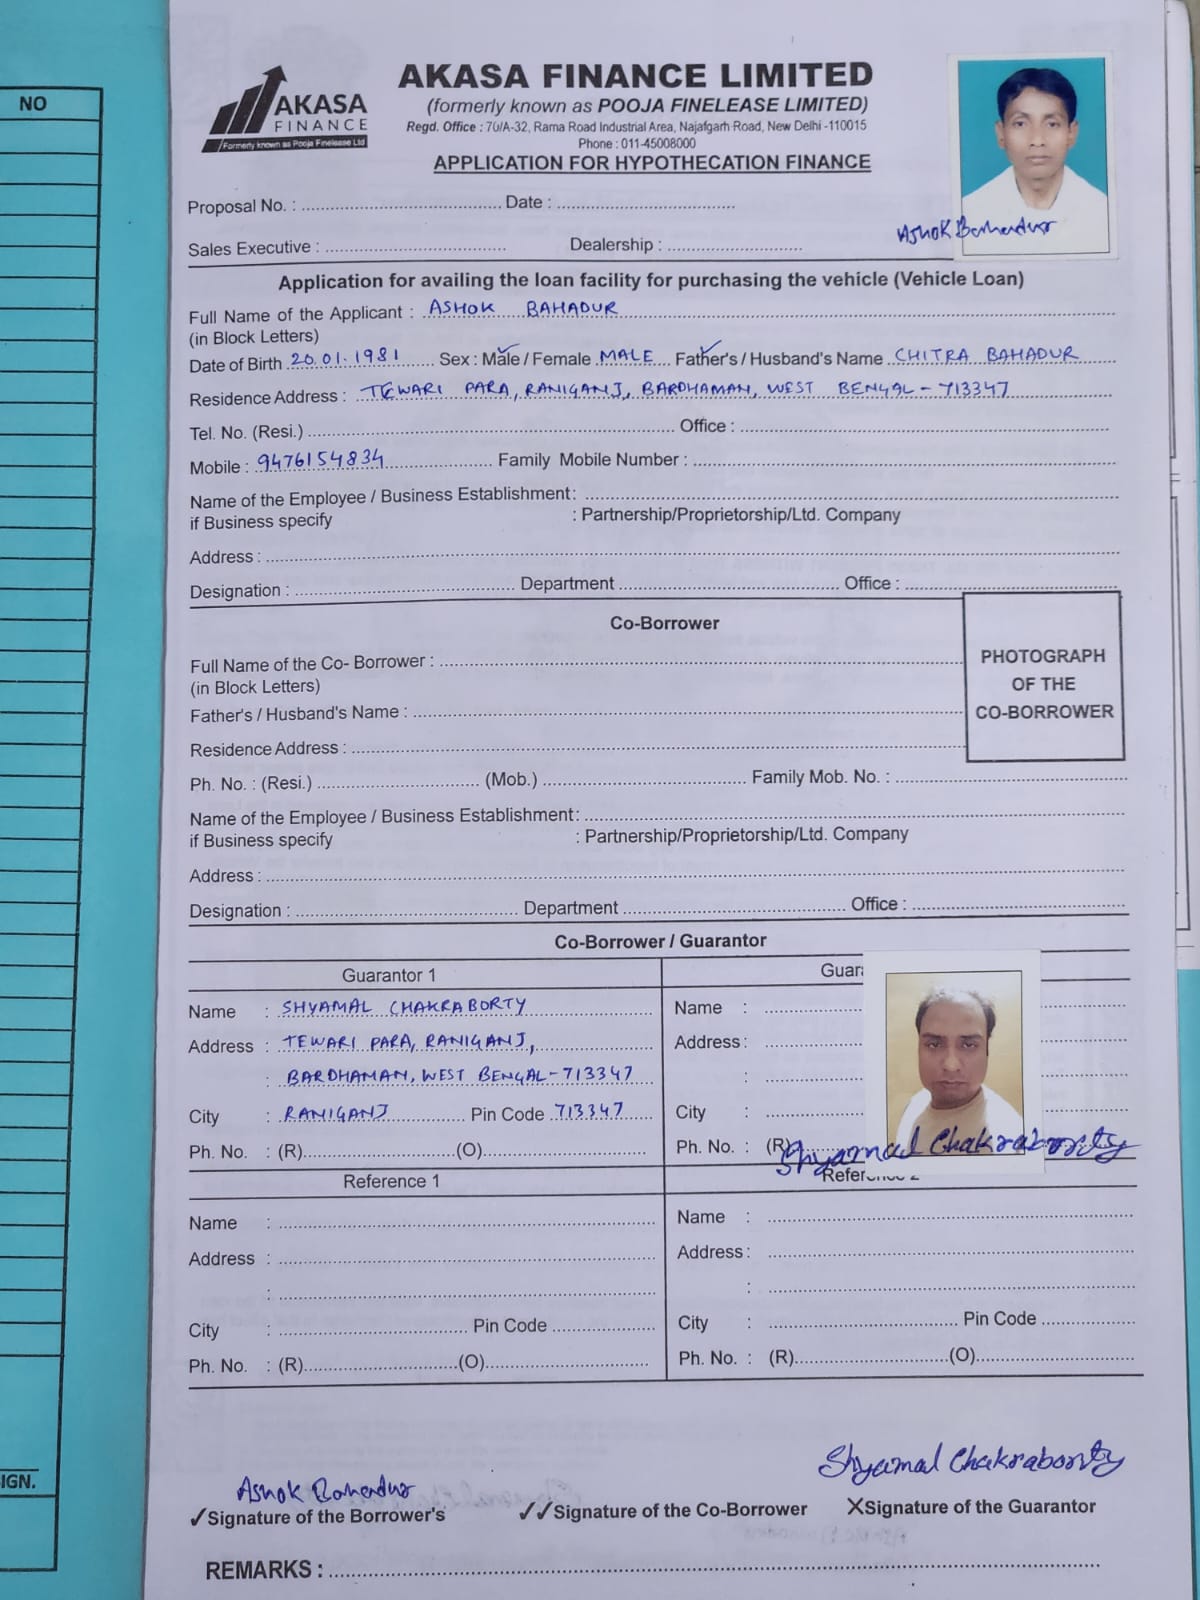 NO
AKASA
FINANCE
Formerly known as Pooja Finelease Ltd
AKASA FINANCE LIMITED
(formerly known as POOJA FINELEASE LIMITED)
Regd. Office : 70/A-32, Rama Road Industrial Area, Najafgarh Road, New Delhi -110015
Phone : 011-45008000
APPLICATION FOR HYPOTHECATION FINANCE
Ashok Bahadur
Proposal No. : Date :
Sales Executive : Dealership :
Application for availing the loan facility for purchasing the vehicle (Vehicle Loan)
Full Name of the Applicant : ASHOK BAHADUR
(in Block Letters)
Date of Birth 20.01.1981 Sex : Male / Female MALE Father's / Husband's Name CHITRA BAHADUR
Residence Address : TEWARI PARA, RANIGANJ, BARDHAMAN, WEST BENGAL - 713347
Tel. No. (Resi.) Office :
Mobile : 9476154834 Family Mobile Number :
Name of the Employee / Business Establishment :
if Business specify : Partnership/Proprietorship/Ltd. Company
Address :
Designation : Department Office :
Co-Borrower
Full Name of the Co- Borrower :
(in Block Letters)
Father's / Husband's Name :
Residence Address :
PHOTOGRAPH
OF THE
CO-BORROWER
Ph. No. : (Resi.) (Mob.) Family Mob. No. :
Name of the Employee / Business Establishment :
if Business specify : Partnership/Proprietorship/Ltd. Company
Address :
Designation : Department Office :
Co-Borrower / Guarantor
Guarantor 1
Name : SHYAMAL CHAKRABORTY
Address : TEWARI PARA, RANIGANJ,
: BARDHAMAN, WEST BENGAL - 713347
City : RANIGANJ Pin Code 713347
Ph. No. : (R) (O)
Guar
Name :
Address :
:
City :
Ph. No. : (R)
Shyamal Chakraborty
Reference 1
Name :
Address :
:
City : Pin Code
Ph. No. : (R) (O)
Reference 2
Name :
Address :
:
City : Pin Code
Ph. No. : (R) (O)
IGN.
Ashok Bahadur
✓Signature of the Borrower's
✓✓Signature of the Co-Borrower
Shyamal Chakraborty
XSignature of the Guarantor
REMARKS :